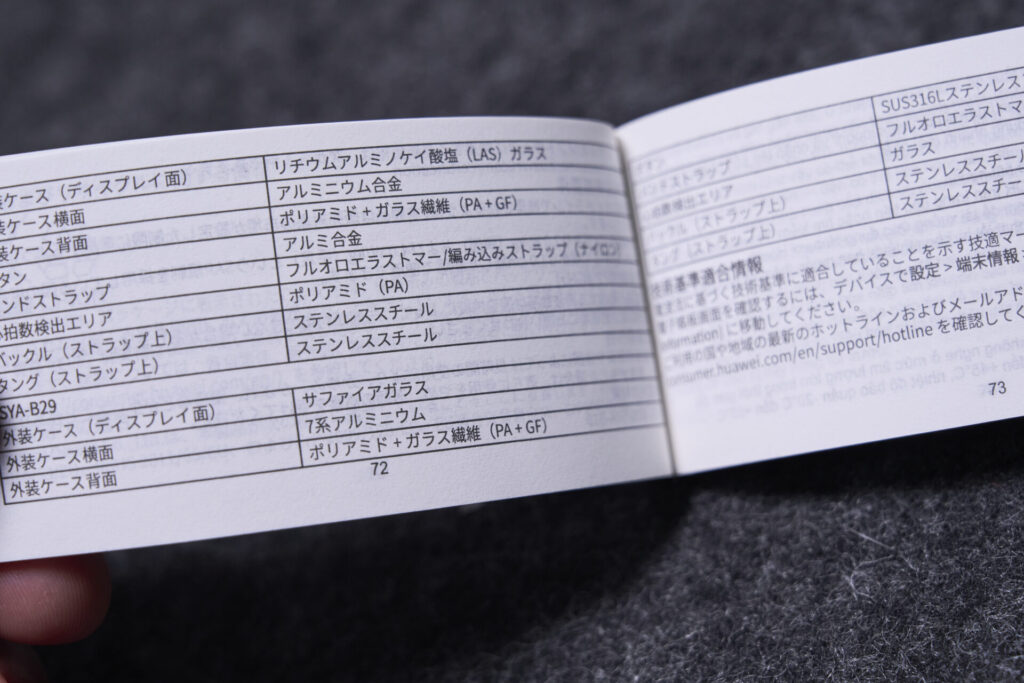 装ケース（ディスプレイ面） リチウムアルミノケイ酸塩（LAS）ガラス
装ケース横面 アルミニウム合金
装ケース背面 ポリアミド＋ガラス繊維（PA＋GF）
タン アルミ合金
ンドストラップ フルオロエラストマー/編み込みストラップ（ナイロン）
心拍数検出エリア ポリアミド（PA）
バックル（ストラップ上） ステンレススチール
タング（ストラップ上） ステンレススチール
SYA-B29
外装ケース（ディスプレイ面） サファイアガラス
外装ケース横面 7系アルミニウム
外装ケース背面 ポリアミド＋ガラス繊維（PA＋GF）
72
SUS316Lステンレス
ンドストラップ フルオロエラストマ
拍数検出エリア ガラス
ックル（ストラップ上） ステンレススチール
ング（ストラップ上） ステンレススチー
技術基準適合情報
に基づく技術基準に適合していることを示す技適マー
画面を確認するには、デバイスで設定 > 端末情報 >
information] に移動してください。
ご利用の国や地域の最新のホットラインおよびメールアド
consumer.huawei.com/en/support/hotline を確認してく
73